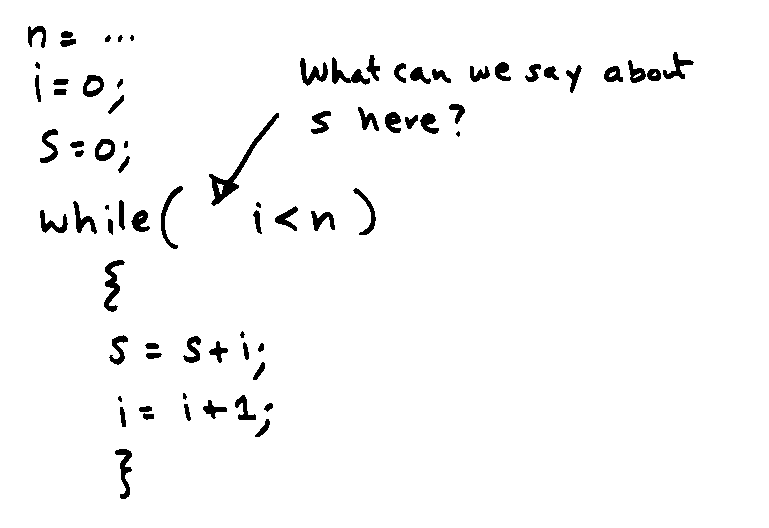 n = ...
i = 0;
What can we say about
s here?
S = 0;
while( i < n )
{
s = s + i;
i = i + 1;
}